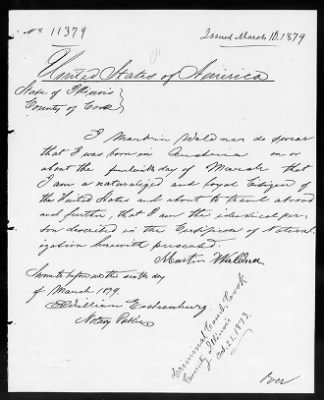 No 11379
Issued March 10. 1879
United States of America
State of Illinois
County of Cook
I Martin Waldner do swear
that I was born in Austria on or
about the day of March that
I am a naturalized and loyal Citizen of
the United States and about to travel abroad
and further, that I am the identical per-
son described in the Certificate of Natural-
ization herewith presented.
Martin Waldner
Sworn to before me this sixth day
of March 1879.
William Eschenburg
Notary Public
Criminal Court, Cook
County, Illinois
Oct. 21, 1873.
Over